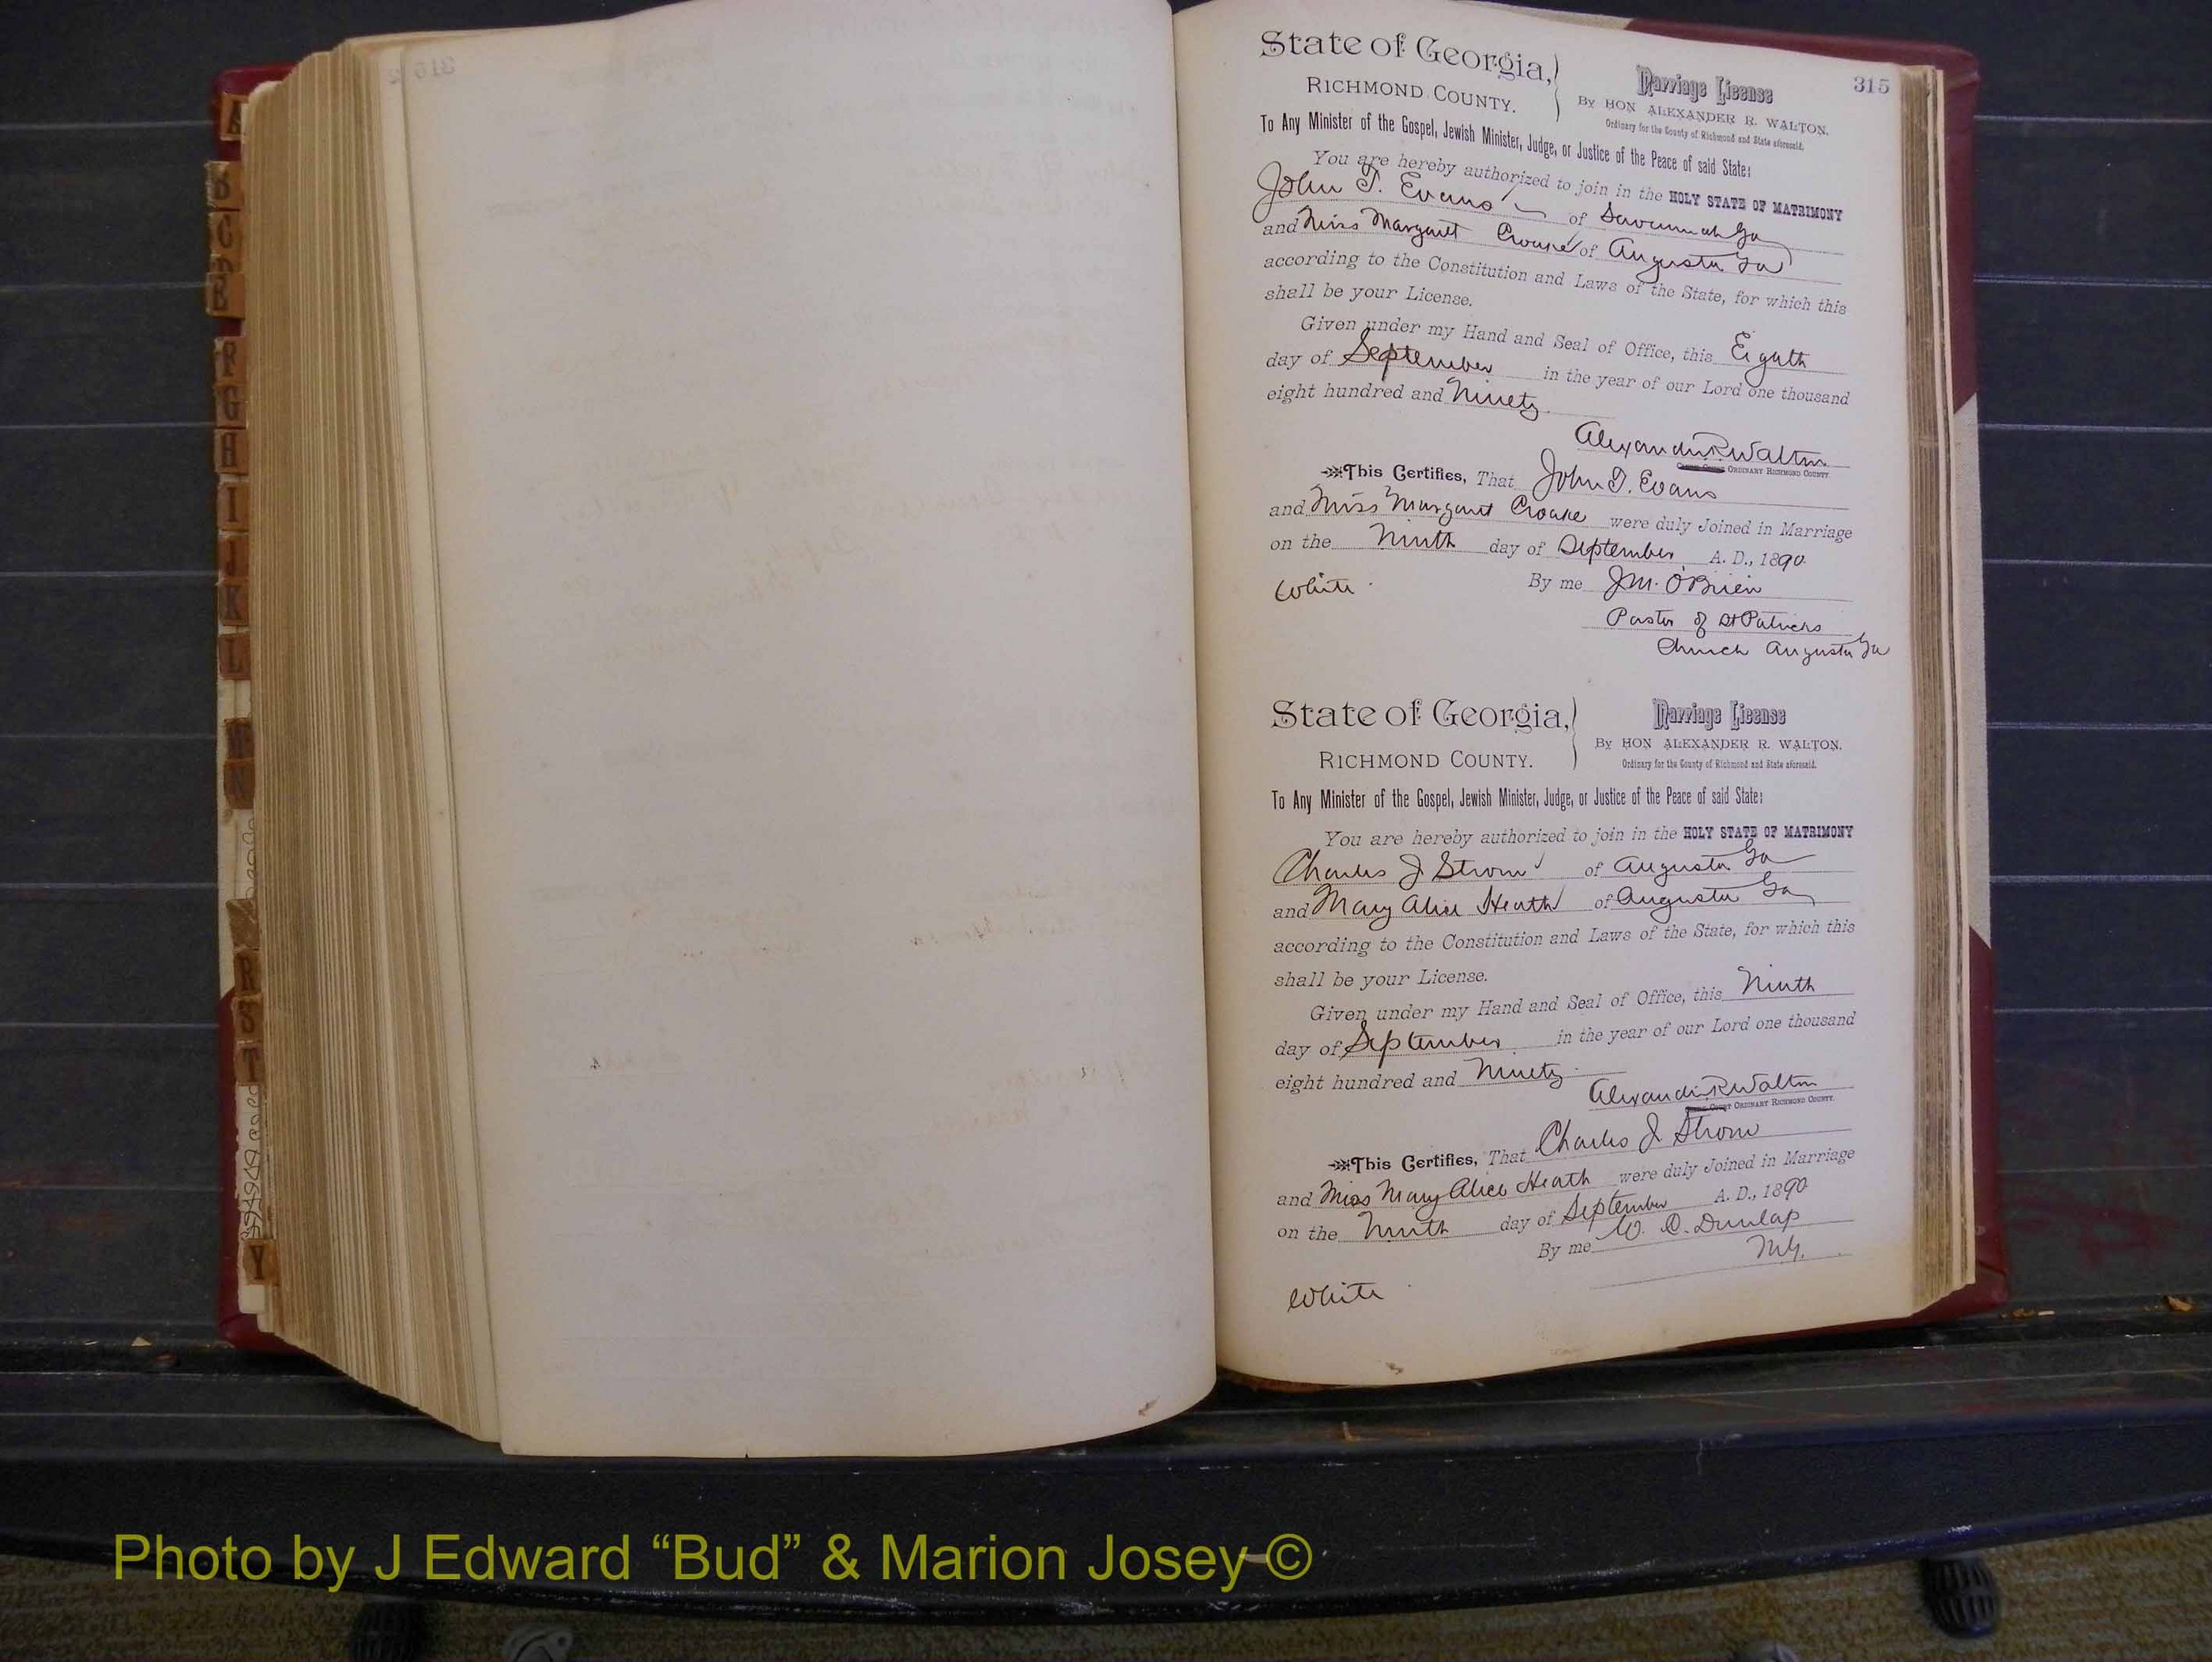 315
State of Georgia,
RICHMOND COUNTY.
Marriage License
By HON ALEXANDER R. WALTON,
Ordinary for the County of Richmond and State aforesaid.
To Any Minister of the Gospel, Jewish Minister, Judge, or Justice of the Peace of said State:
You are hereby authorized to join in the HOLY STATE OF MATRIMONY
John T. Evans of Savannah Ga
and Miss Margaret Croake of Augusta Ga
according to the Constitution and Laws of the State, for which this
shall be your License.
Given under my Hand and Seal of Office, this Eighth
day of September in the year of our Lord one thousand
eight hundred and Ninety
Alexander R Walton
ORDINARY RICHMOND COUNTY
This Certifies, That John T. Evans
and Miss Margaret Croake were duly Joined in Marriage
on the Ninth day of September A. D., 1890
White By me J M. O'Brien
Pastor of St Patricks
Church Augusta Ga
State of Georgia,
RICHMOND COUNTY.
Marriage License
By HON ALEXANDER R. WALTON,
Ordinary for the County of Richmond and State aforesaid.
To Any Minister of the Gospel, Jewish Minister, Judge, or Justice of the Peace of said State:
You are hereby authorized to join in the HOLY STATE OF MATRIMONY
Charles J Strom of Augusta Ga
and Mary Alice Heath of Augusta Ga
according to the Constitution and Laws of the State, for which this
shall be your License.
Given under my Hand and Seal of Office, this Ninth
day of September in the year of our Lord one thousand
eight hundred and Ninety
Alexander R Walton
ORDINARY RICHMOND COUNTY.
This Certifies, That Charles J Strom
and Miss Mary Alice Heath were duly Joined in Marriage
on the Ninth day of September A. D., 1890
By me W. D. Dunlap
M.G.
White
A
B
C
D
E
F
G
H
I
J
K
L
M
N
R
S
T
Y
Photo by J Edward “Bud” & Marion Josey ©